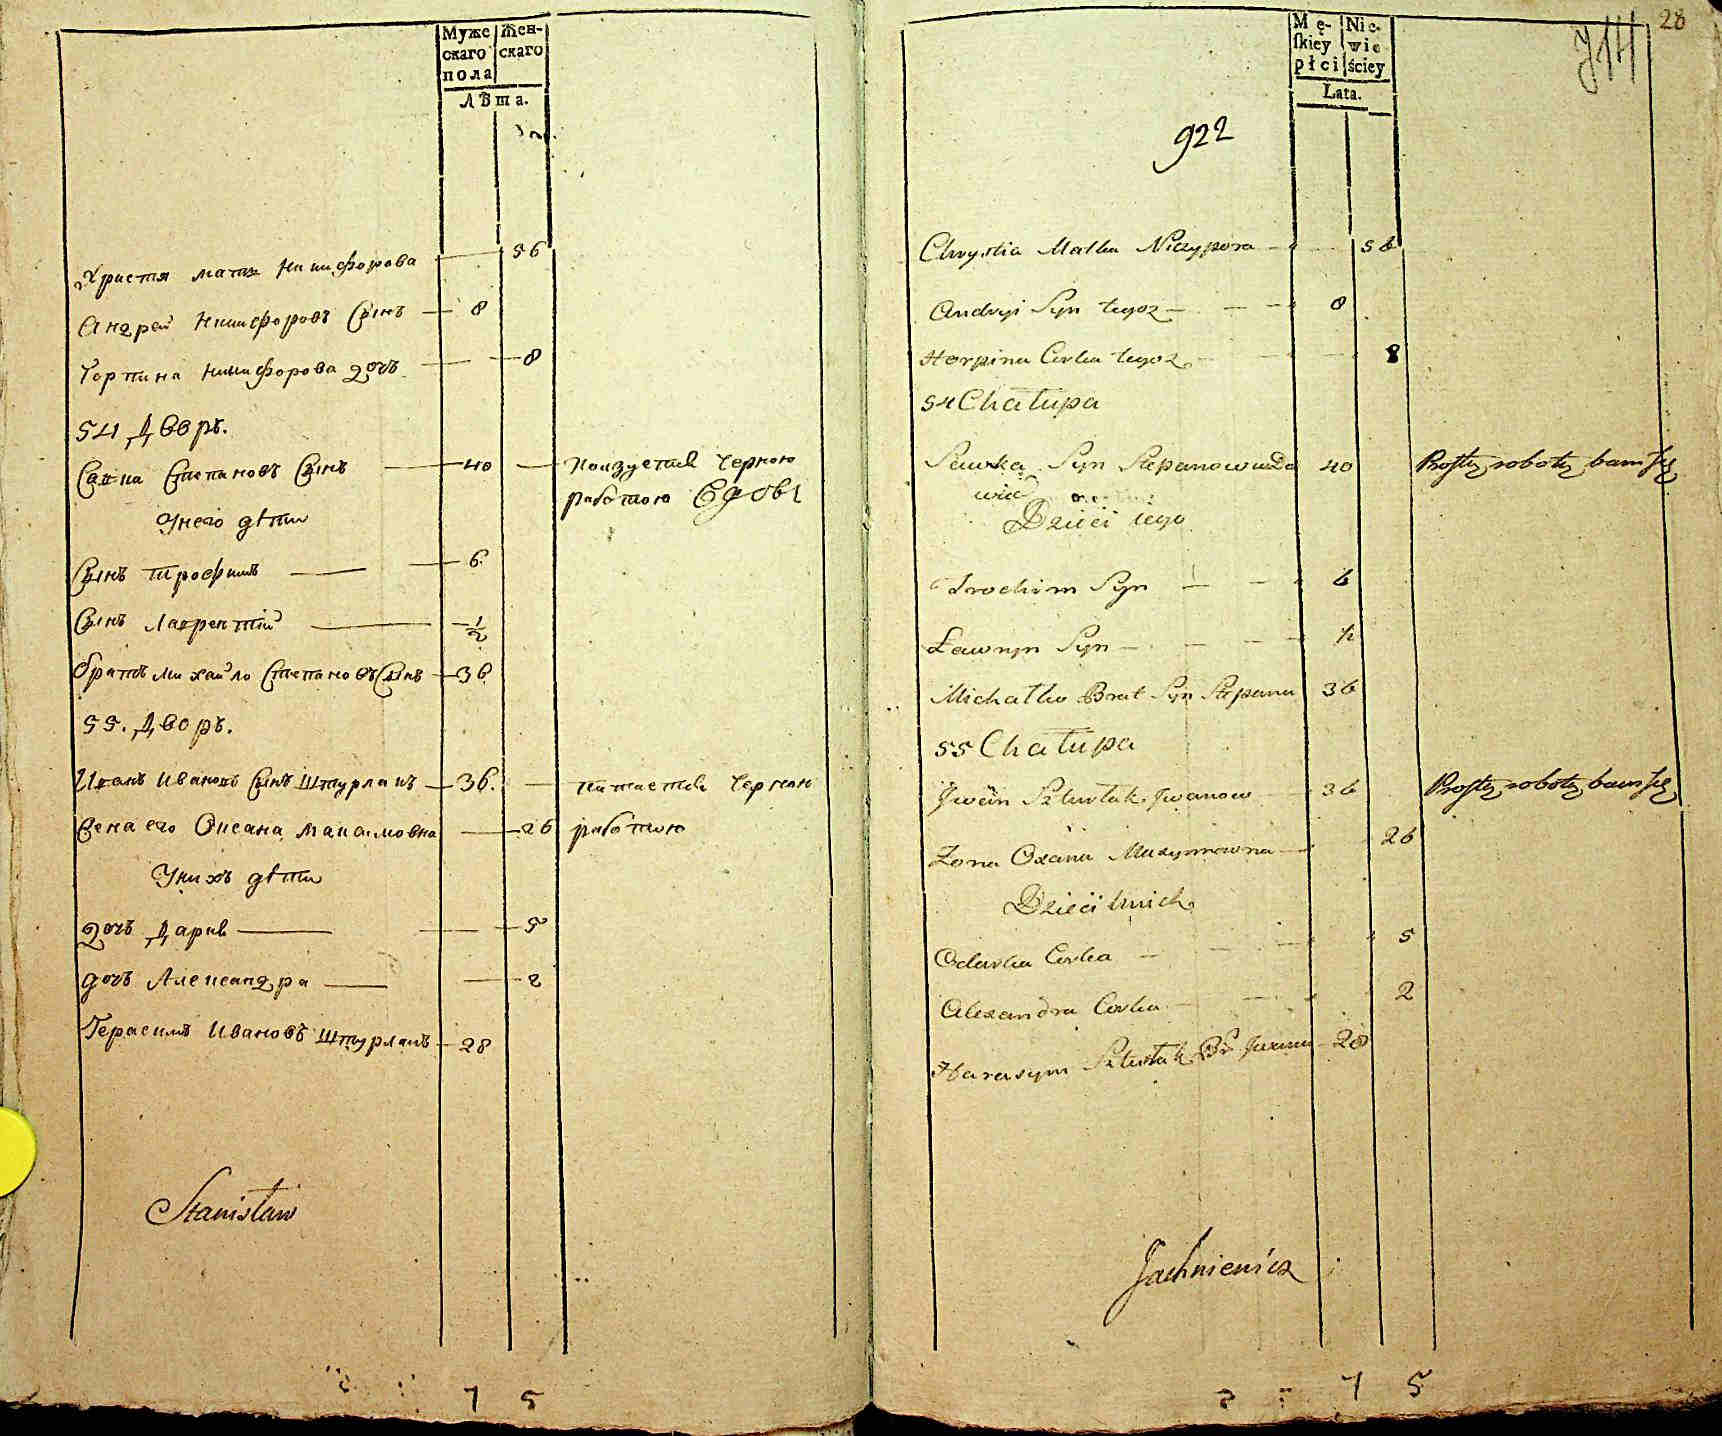 Муже
скаго
пола
Жен-
скаго
Лѣта.
Христя мати Никифорова 56
Андрей Никифоровъ Сынъ 8
Горпина Никифорова дочь 8
54 Дворъ.
Савка Степановъ Сынъ 40 Ползуется Черною
работою Вдовъ
У него дѣти
Сынъ Трофимъ 6
Сынъ Лаврентій 1/2
братъ Михайло Степановъ Сынъ 36
55. Дворъ.
Иванъ Ивановъ Сынъ Штурлакъ 36. питается Черною
Жена его Оксана Максимовна 26 работою
У нихъ дѣти
дочь Дарья 5
дочь Александра 2
Герасимъ Ивановъ Штурлакъ 28
Stanisław
7 5
28
Mę-
skiey
płci
Nie-
wie
ściey
Lata.
922
Chrystia Matka Niczypora 56
Andryi Syn tegoz 8
Horpina Corka tegoz 8
54 Chałupa
Sawka Syn Stepanow wdo 40 Prostą robotą bawi się
wiec
Dzieci iego
Trochim Syn 6
Ławryn Syn 1/2
Michałko Brat Syn Stepana 36
55 Chałupa
Jwan Szturłak Jwanow 36 Prostą robotą bawi się
Zona Oxana Maxymowna 26
Dzieci tnich
Odarka Corka 5
Alexandra Corka 2
Harasym Szturłak Br Jwana 28
Jachniewicz
7 5